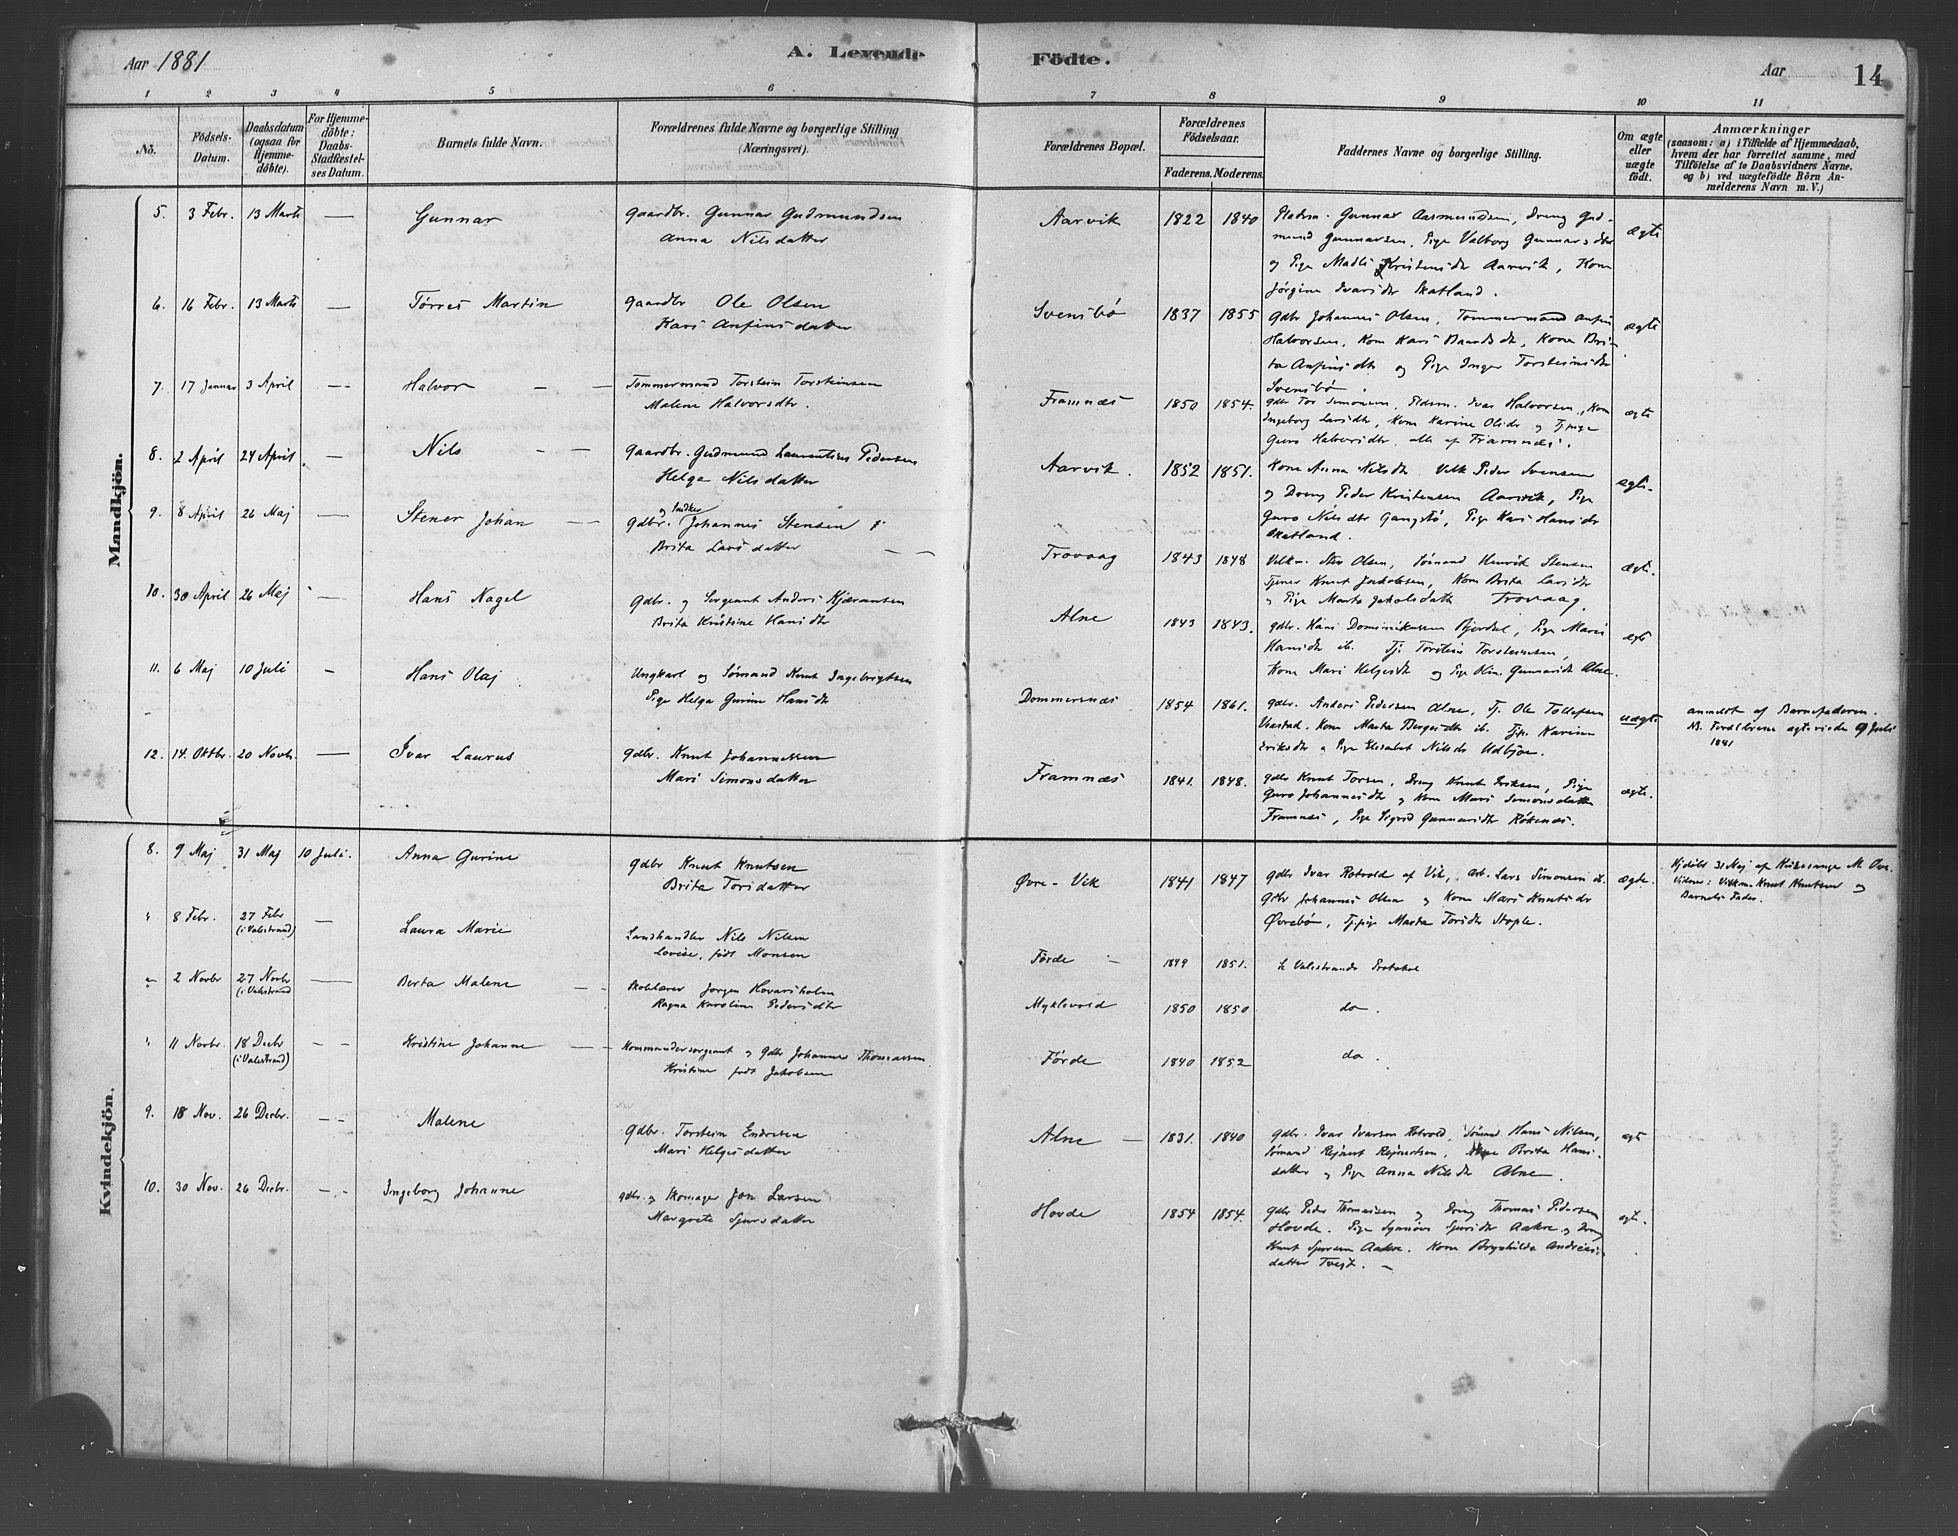 Aar 1881
A. Levende
Födte.
Aar
14
1 2 3 4 5 6 7 8 9 10 11
Nô.
Födsels-Datum.
Daabsdatum (ogsaa for Hjemme-döbte).
For Hjemme-döbte; Daabs-Stadfæstel-ses Datum.
Barnets fulde Navn.
Forældrenes fulde Navne og borgerlige Stilling
(Næringsvei).
Forældrenes Bopæl.
Forældrenes Födselsaar.
Faderens. Moderens.
Faddernes Navne og borgerlige Stilling.
Om ægte eller uægte födt.
Anmærkninger
(saasom: a) i Tilfælde af Hjemmedaab,
hvem der har forrettet samme, med
Tilföielse af to Daabsvidners Navne.
og b) ved uægtefödte Börn An-
melderens Navn m. V.)
Mandkjön.
5. 3 Febr. 13 Marts — Gunnar
Gaardbr. Gunnar Gudmundsen
Anna Nilsdatter
Aarvik 1822 1840
Pladsm. Gunnar Aasmundsen, Dreng Gud-
mund Gunnarsen, Pige Valborg Gunnarsdtr
og Pige Madli Kristensdtr Aarvik, Kone
Jørgine Ivarsdtr Skatland.
ægte
6. 16 Febr. 13 Marts — Tørres Martin
Gaardbr Ole Olsen
Kari Anfinsdatter
Svensbø 1837 1855
Gdbr Johannes Olsen, Tømmermand Anfin
Halvorsen, Kone Kari Baardsdtr, Kone Bri-
ta Anfinsdtr og Pige Inger Torsteinsdtr
Svensbø.
ægte
7. 17 Januar 3 April — Halvor — —
Tømmermand Torstein Torsteinsen
Malene Halvorsdtr.
Framnæs 1850 1854.
Gdbr Tor Simonsen, Pldsm. Ivar Halvorsen, Kone
Ingeborg Larsdtr, Kone Karine Olsdtr og Tj.pige
Guro Halvorsdtr, alle af Framnæs.
ægte
8. 2 April 24 April. — Nils — —
Gaardbr. Gudmund Laurentius Pedersen
Helga Nilsdatter
Aarvik. 1852 1851.
Kone Anna Nilsdtr. Peder Svensen
og Dreng Peder Kristensen Aarvik, Pige
Guro Nilsdtr Gangstø, Pige Kari Hansdtr
Skatland.
ægte.
9. 8 April 26 Maj — Stener Johan — —
Gdbr. og Johannes Stensen
Brita Larsdatter — —
Trovaag 1843 1848
Sten Olsen, Sømand Henrik Stensen
Tjener Knut Jakobsen, Kone Brita Larsdtr
og Pige Marta Jakobsdatt Trovaag.
ægte.
10. 30 April 26 Maj — Hans Nagel
Gdbr. og Sergeant Anders Kjærandsen
Brita Kristine Hansdtr
Alne 1843 1843.
Gdbr. Hans Dominikusen Bjordal, Pige Mari
Hansdtr ib. Tj. Torstein Torsteinsen,
Kone Mari Helgesdtr og Pige Gunnarsdtr Alne.
ægt
11. 6 Maj 10 Juli — Hans Olaj
Ungkarl og Sømand Knut Ingebrigtsen
Pige Helga Gurine Hansdtr
Dommersnæs 1854 1861.
Gdbr. Anders Pedersen Alne, Tj. Ole Tollefsen
Vaastad. Kone Marta Børgesdtr ib. Tjp. Karine
Eriksdtr og Pige Elisabet Nilsdtr Udbjoe.
uægte
anmeldt af Barnefaderen.
NB. Forældrene ægteviede 9 Juli
1881
12. 14. Oktbr. 20 Novb. — Ivar Laurus
Gdbr. Knut Johannessen
Mari Simonsdatter
Framnæs 1841. 1848.
Gdbr Knut Torsen, Dreng Knut Eriksen, Pige
Guro Johannesdtr og Kone Mari Simonsdatter
Framnæs, Pige Sigrid Gunnarsdtr Røkenæs.
ægte.
Kvindekjön.
8. 9 Maj 31 Maj 10 Juli. Anna Gurine
Gdbr Knut Knutsen
Brita Torsdatter
Øvre-Vik 1841 1847
Gdbr Ivar Rotvold af Vik, Arb. Lars Simonsen ib.
Gdbr Johannes Olsen og Kone Mari Knutsdtr
Øvrebø, Tj.pige Marta Torsdtr Stople.
ægte.
Hjdøbt 31 Maj af Kirkesanger M. Ove.
Vidner: Knut Knutsen og
Barnets Fader.
" 8 Febr. 27 Febr — Laura Marie
(i Valestrand)
Landhandler Nils Nilsen
Lovise, født Monsen
Førde — 1849 1851.
Se Valestrands Protokol
" 2 Novbr 27 Novbr — Berta Malene — —
(i Valestrand
Skolelærer Jørgen Hovarsholm
Ragna Karoline Pedersdtr
Myklevold 1850 1850
do.
" 11 Novbr. 18 Decbr — — Kristine Johanne — —
(i Valestrand)
Kommandersergeant og Gdbr Johannes Thomassen
Kristine født Jakobsen
Førde 1840 1852
do.
9. 18 Nov. 26 Decbr. — — Malene
Gdbr. Torstein Endresen
Mari Helgesdatter
Alne — 1831. 1840
Gdbr. Ivar Ivarsen Rotvold, Sømand Hans Nilsen,
Sømand Rejnert Rejnertsen, Brita Hans-
datter og Pige Anna Nilsdtr Alne.
ægt
10. 30 Nov. 26 Decbr. — — Ingeborg Johanne
Gdbr. og Skomager Jon Larsen
Margrete Sjursdatter
Hovde 1854 1854.
Gdbr Peder Thomassen og Dreng Thomas Pedersen
Hovde. Pige Synnøve Sjursdtr Aakre og Dreng
Knut Sjursen Aakre. Kone Brynhilda Andreas-
datter Tveit. —
ægte.